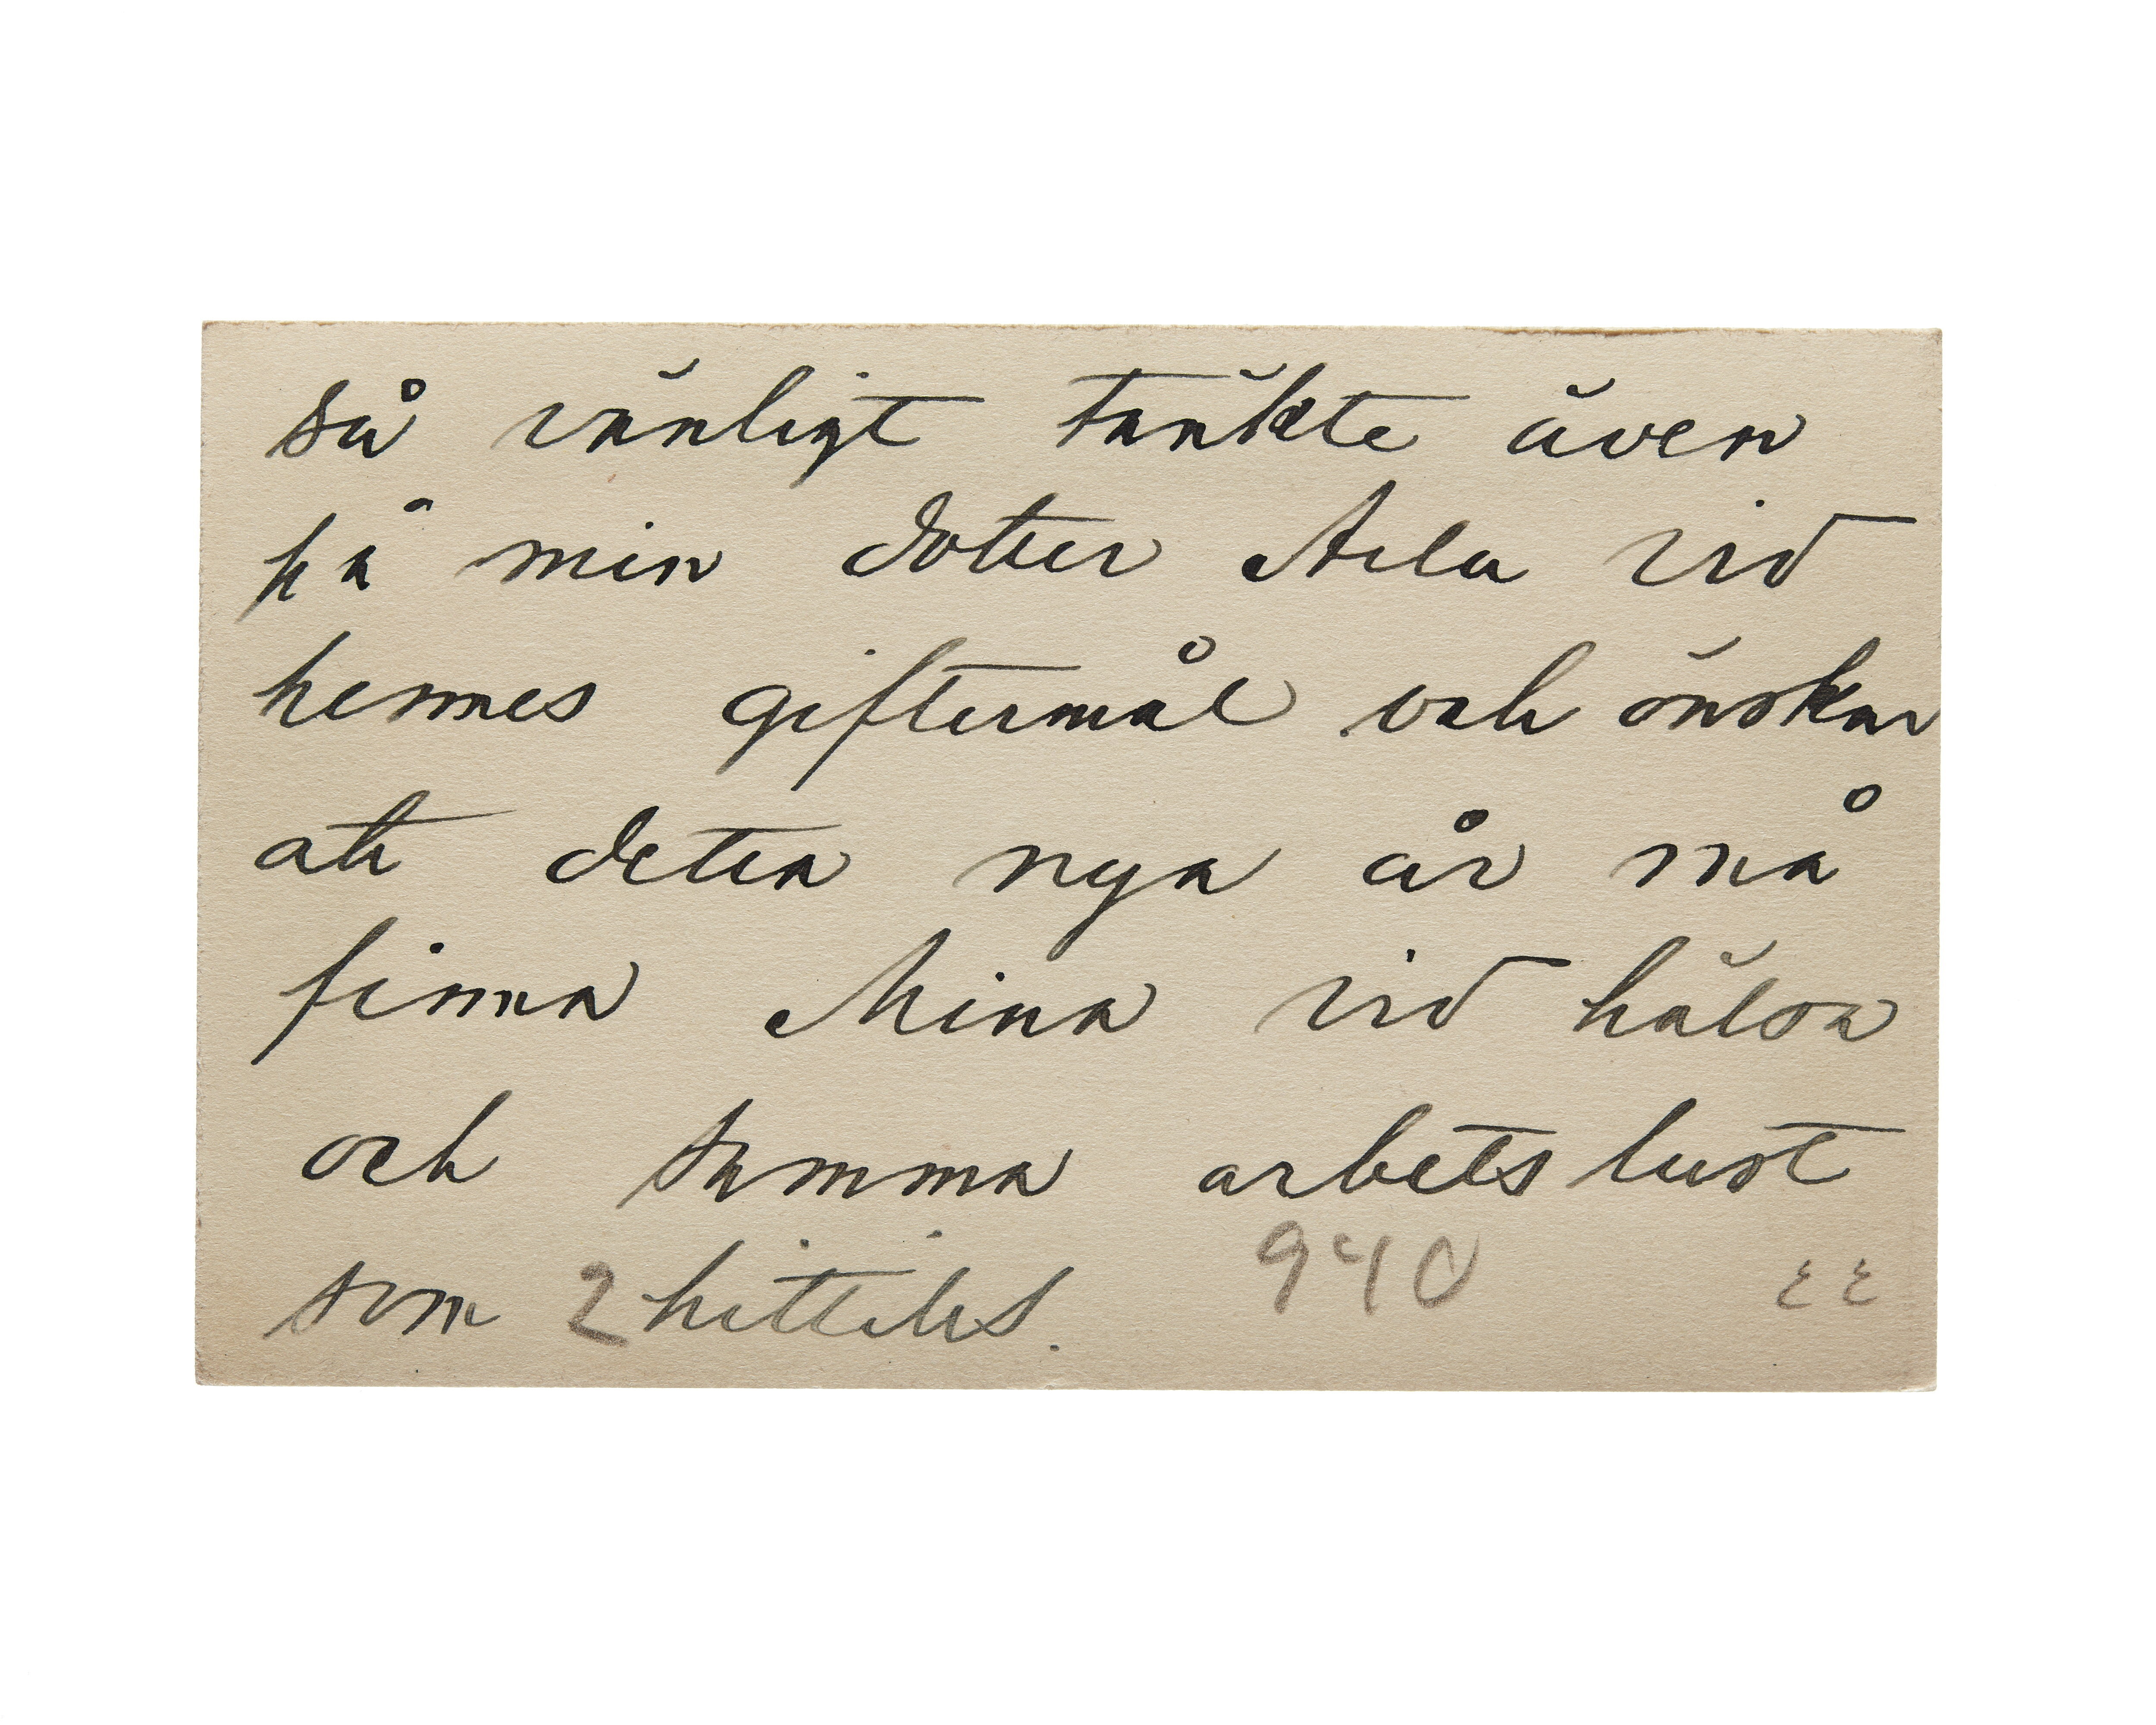 så vänligt tänkte även
på min dotter Arla vid
hennes giftermål och önskar
att detta nya år må
finna Mina vid hälsa
och samma arbetslust
som 2 hittills. 940